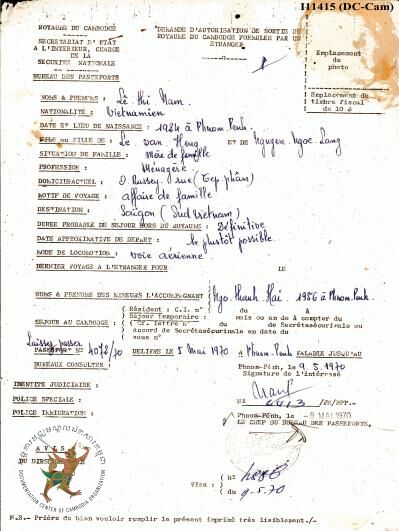 I11415 (DC-Cam)
ROYAUME DU CAMBODGE
SECRETARIAT D'ETAT
A L'INTERIEUR, CHARGE
DE LA
SECURITE NATIONALE
BUREAU DES PASSEPORTS
DEMANDE D'AUTORISATION DE SORTIE DU
ROYAUME DU CAMBODGE FORMULEE PAR UN
ETRANGER
Emplacement
de
photo
Emplacement de
timbre fiscal
de 10 $
NOMS & PRENOMS : Le thi Nam.
NATIONALITE : Vietnamien
DATE ET LIEU DE NAISSANCE : 1924 à Phnom.Penh.
FILS ou FILLE DE : Le van Hung ET DE Nguyen.Ngoc.Lang
SITUATION DE FAMILLE : Mère de famille
PROFESSION : Ménagère
DOMICILE ACTUEL : O. Russey. rue (Tep phân)
MOTIF DE VOYAGE : affaire de famille
DESTINATION : Saïgon (Sud Vietnam)
DUREE PROBABLE DE SEJOUR HORS DU ROYAUME : Définitive
DATE APPROXIMATIVE DE DEPART : le plutôt possible
MODE DE LOCOMOTION : voie aérienne
DERNIER VOYAGE A L'ETRANGER POUR LE
NOMS & PRENOMS DES MINEURS L'ACCOMPAGNANT Ngo thanh Hai 1956 à Phnom.Penh.
SEJOUR AU CAMBODGE :
Résident : C.I. n° du
Séjour temporaire : mois ou an à compter du
Cf. lettre n° du de Secrétaséurinale ou
accord de Secrétaséurinale en date du
sous n°
Laissez passer
PASSEPORT N° 4078/70 DELIVRE LE 5 Mai 1970 A Phnom.Penh VALABLE JUSQU'AU
BUREAUX CONSULTES :
Phnom-Penh, le 9.5.1970
Signature de l'intéressé
IDENTITE JUDICIAIRE :
POLICE SPECIALE :
POLICE IMMIGRATION :
Phnom-Pénh, le -9 MAI 1970
LE CHEF DU BUREAU DES PASSEPORTS,
AVIS
DOCUMENTATION CENTER OF CAMBODIA ORGANIZATION
Visa : N°
du 9-5.70
N.B.- Prière de bien vouloir remplir le présent imprimé très lisiblement./-